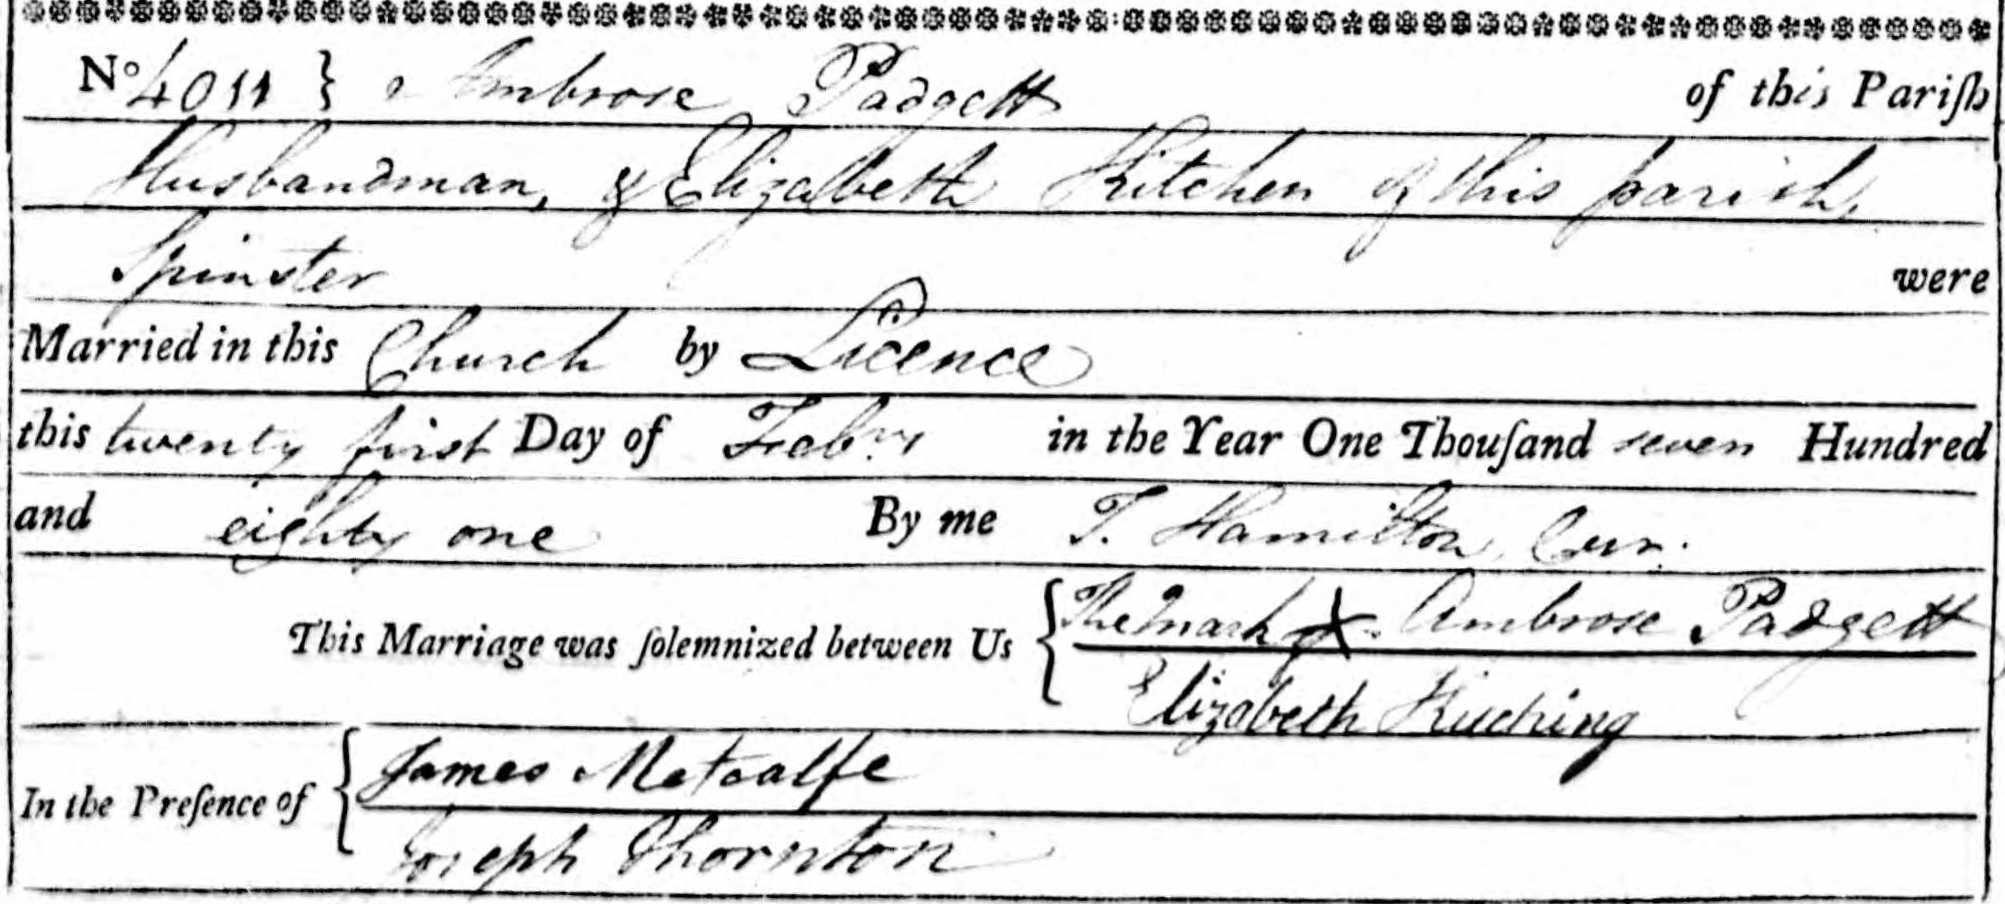 No 4011 } Ambrose Padgett of this Pariſh
Husbandman, & Elizabeth Kitchen of this parish,
Spinster were
Married in this Church by Licence
this twenty first Day of Febry in the Year One Thouſand seven Hundred
and eighty one By me T. Hamilton, Cur.
This Marriage was ſolemnized between Us { The Mark X Ambrose Padgett
Elizabeth Kitching
In the Preſence of { James Metcalfe
Joseph Thornton